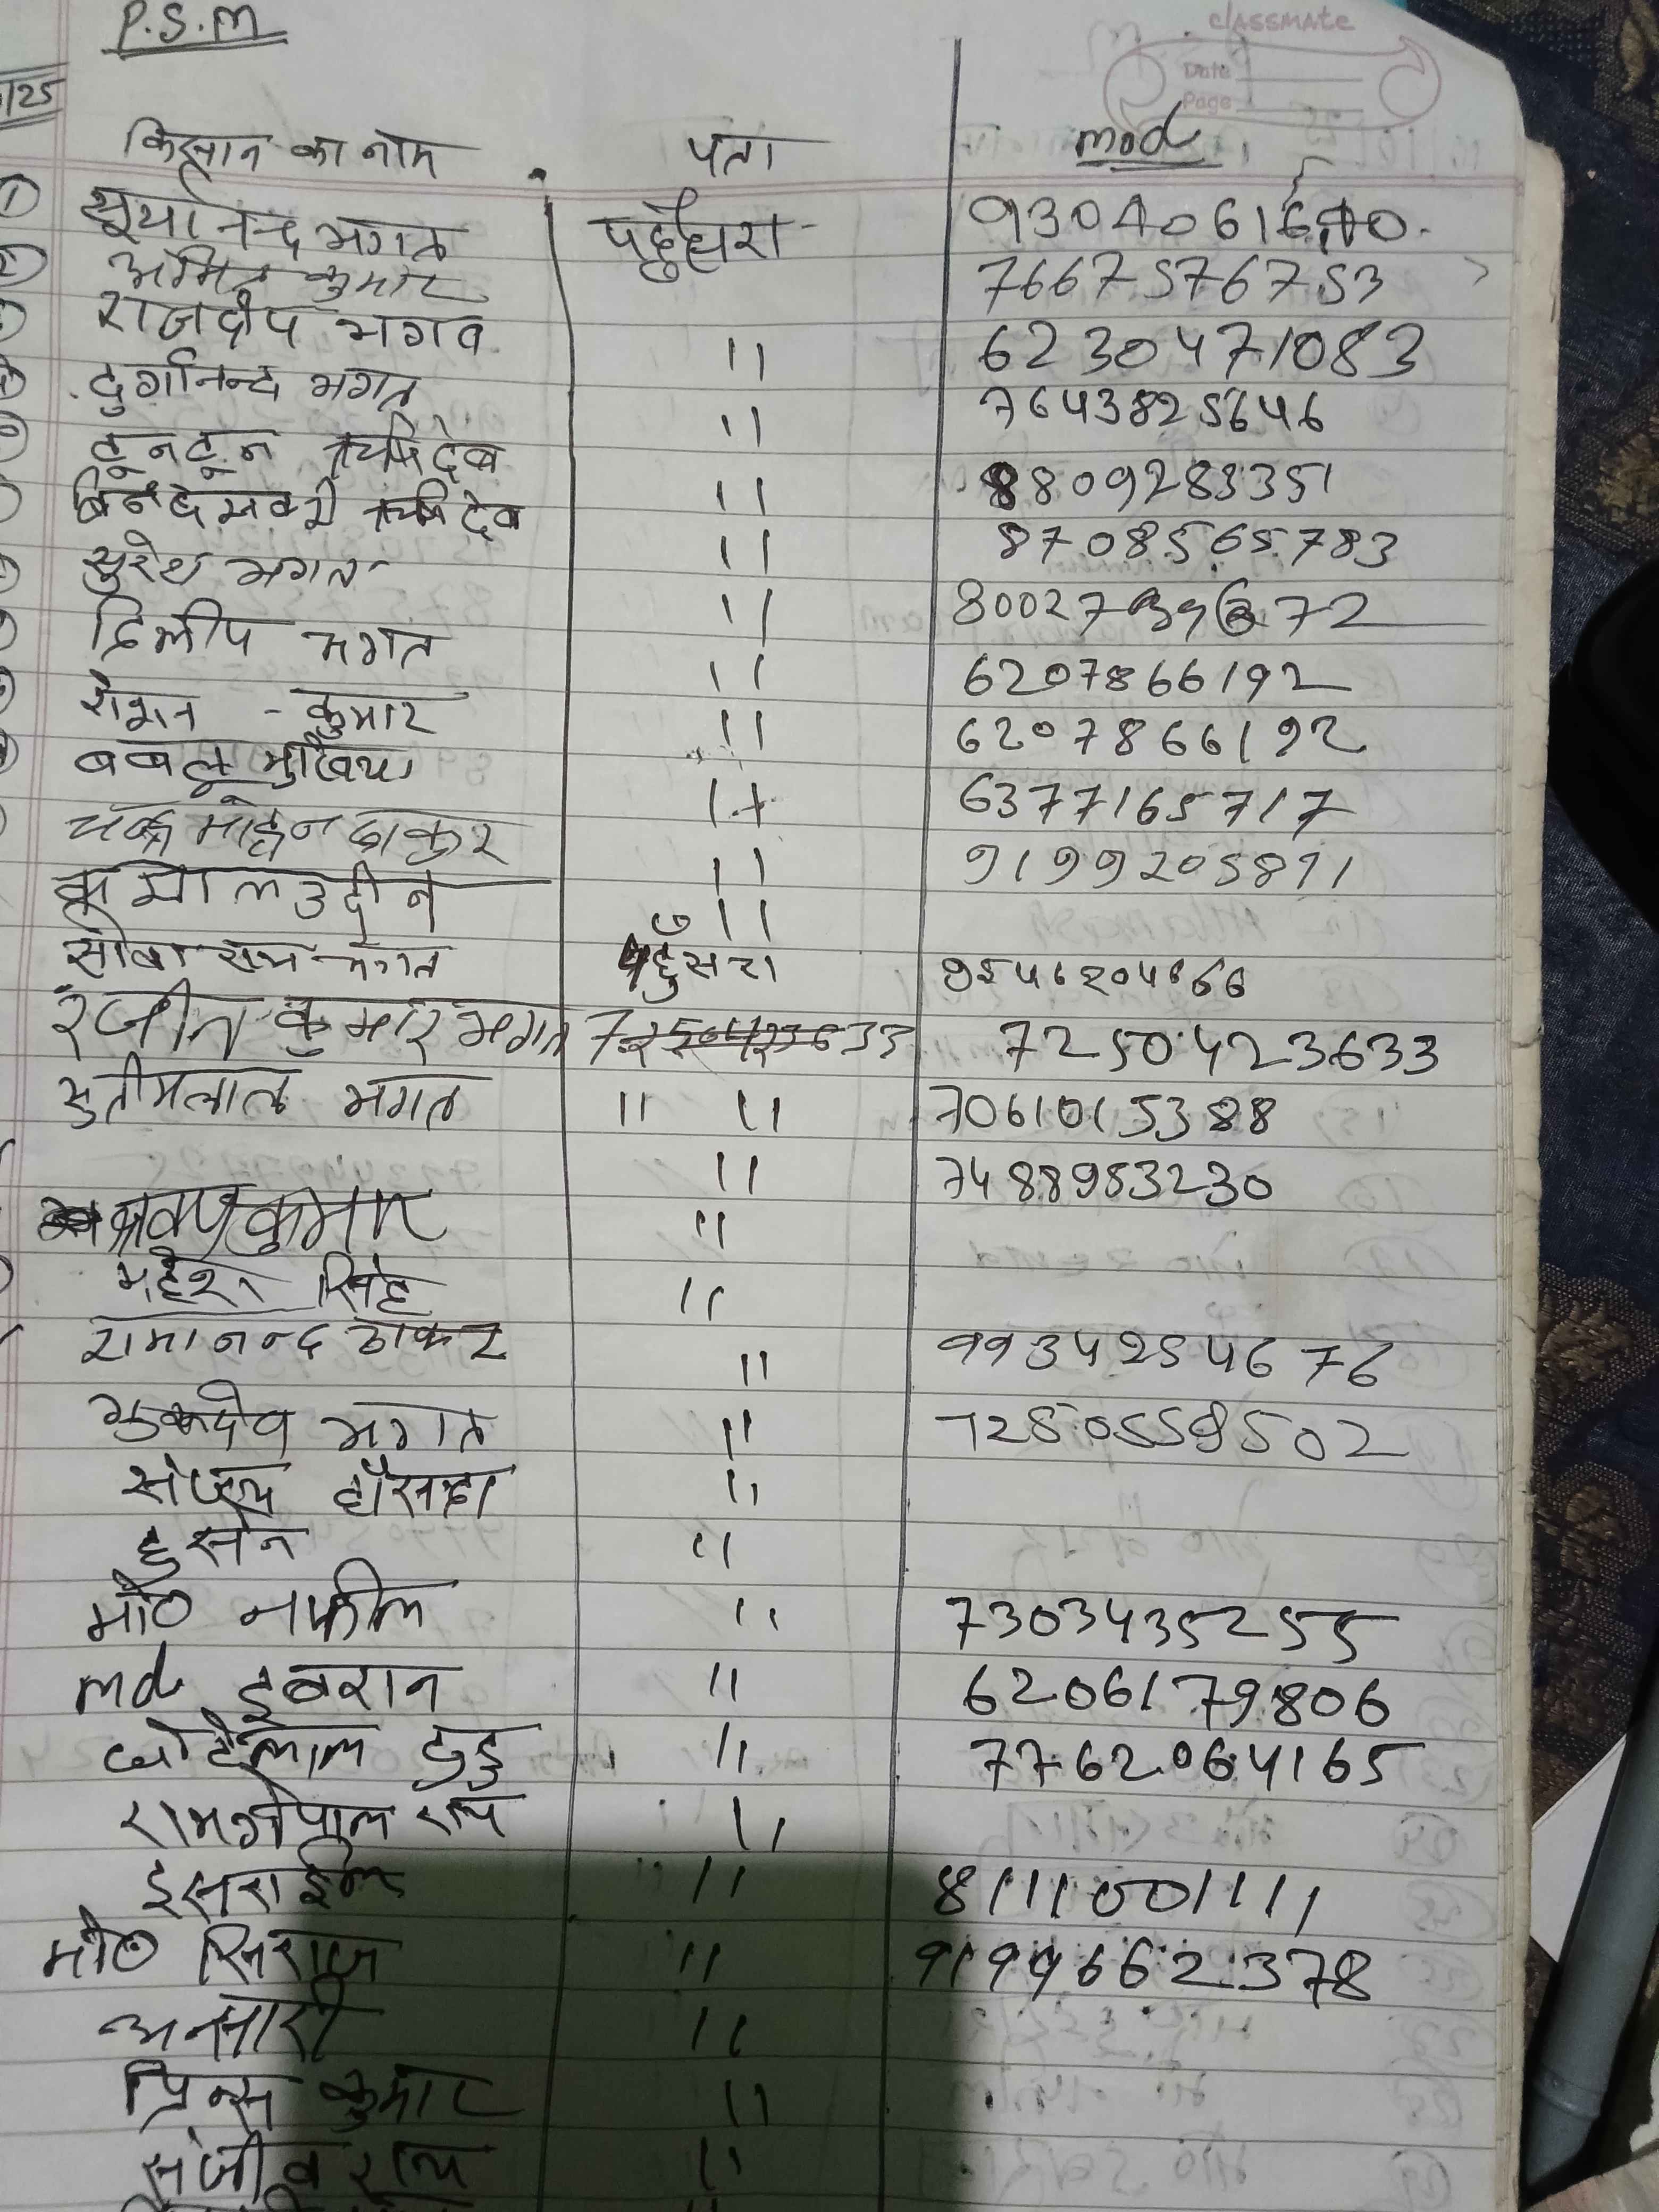 P.S.M
classmate
Date
Page
/25
किसान का नाम पता mod
① सूर्यानन्द भगत पहुँसरा
② अमित कुमार 7667576753
राजदीप भगत " 6230471083
दुर्गानन्द भगत " 7643825646
टूनटून ऋषिदेव " 8809283351
बिनदेसवरी ऋषिदेव " 8708565783
सुरेश भगत " 80027
दिलीप भगत " 6207866192
रोशन - कुमार " 6207866192
बबलू मुखिया " 6377165717
चन्द्र मोहन ठाकुर " 9199205891
कमालउदीन "
सोबा राम भगत पहुँसरा 95446204666
रंजीत कुमार भगत 7250423633 7250423633
सुतीमलाल भगत " " 7061015388
" 7488953230
श्रवण कुमार "
महेश सिंह "
रामानन्द ठाकर " 9934254676
शुकदेव भगत " 7250559502
संजय हाँसदा "
हुसेन "
मो० नफील " 7303435255
md इबरान " 6206179806
छोटेलाल टुडु " 7762064165
रामगोपाल राय "
इसराईल " 8111001111
मो० सिराज " 9199662378
अनसारी "
प्रिन्स कुमार "
संजीव राय "